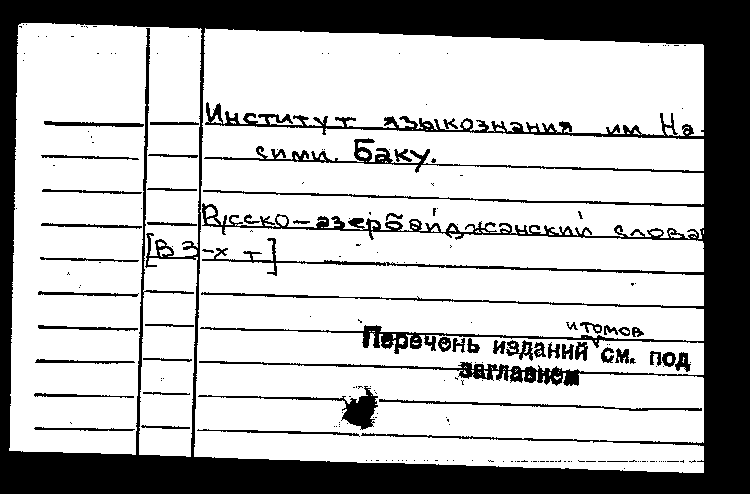 Институт языкознания им. На-
сими. Баку.
Русско-азербайджанский слова
[В 3-х т]
и томов
Перечень изданий см. под
заглавием